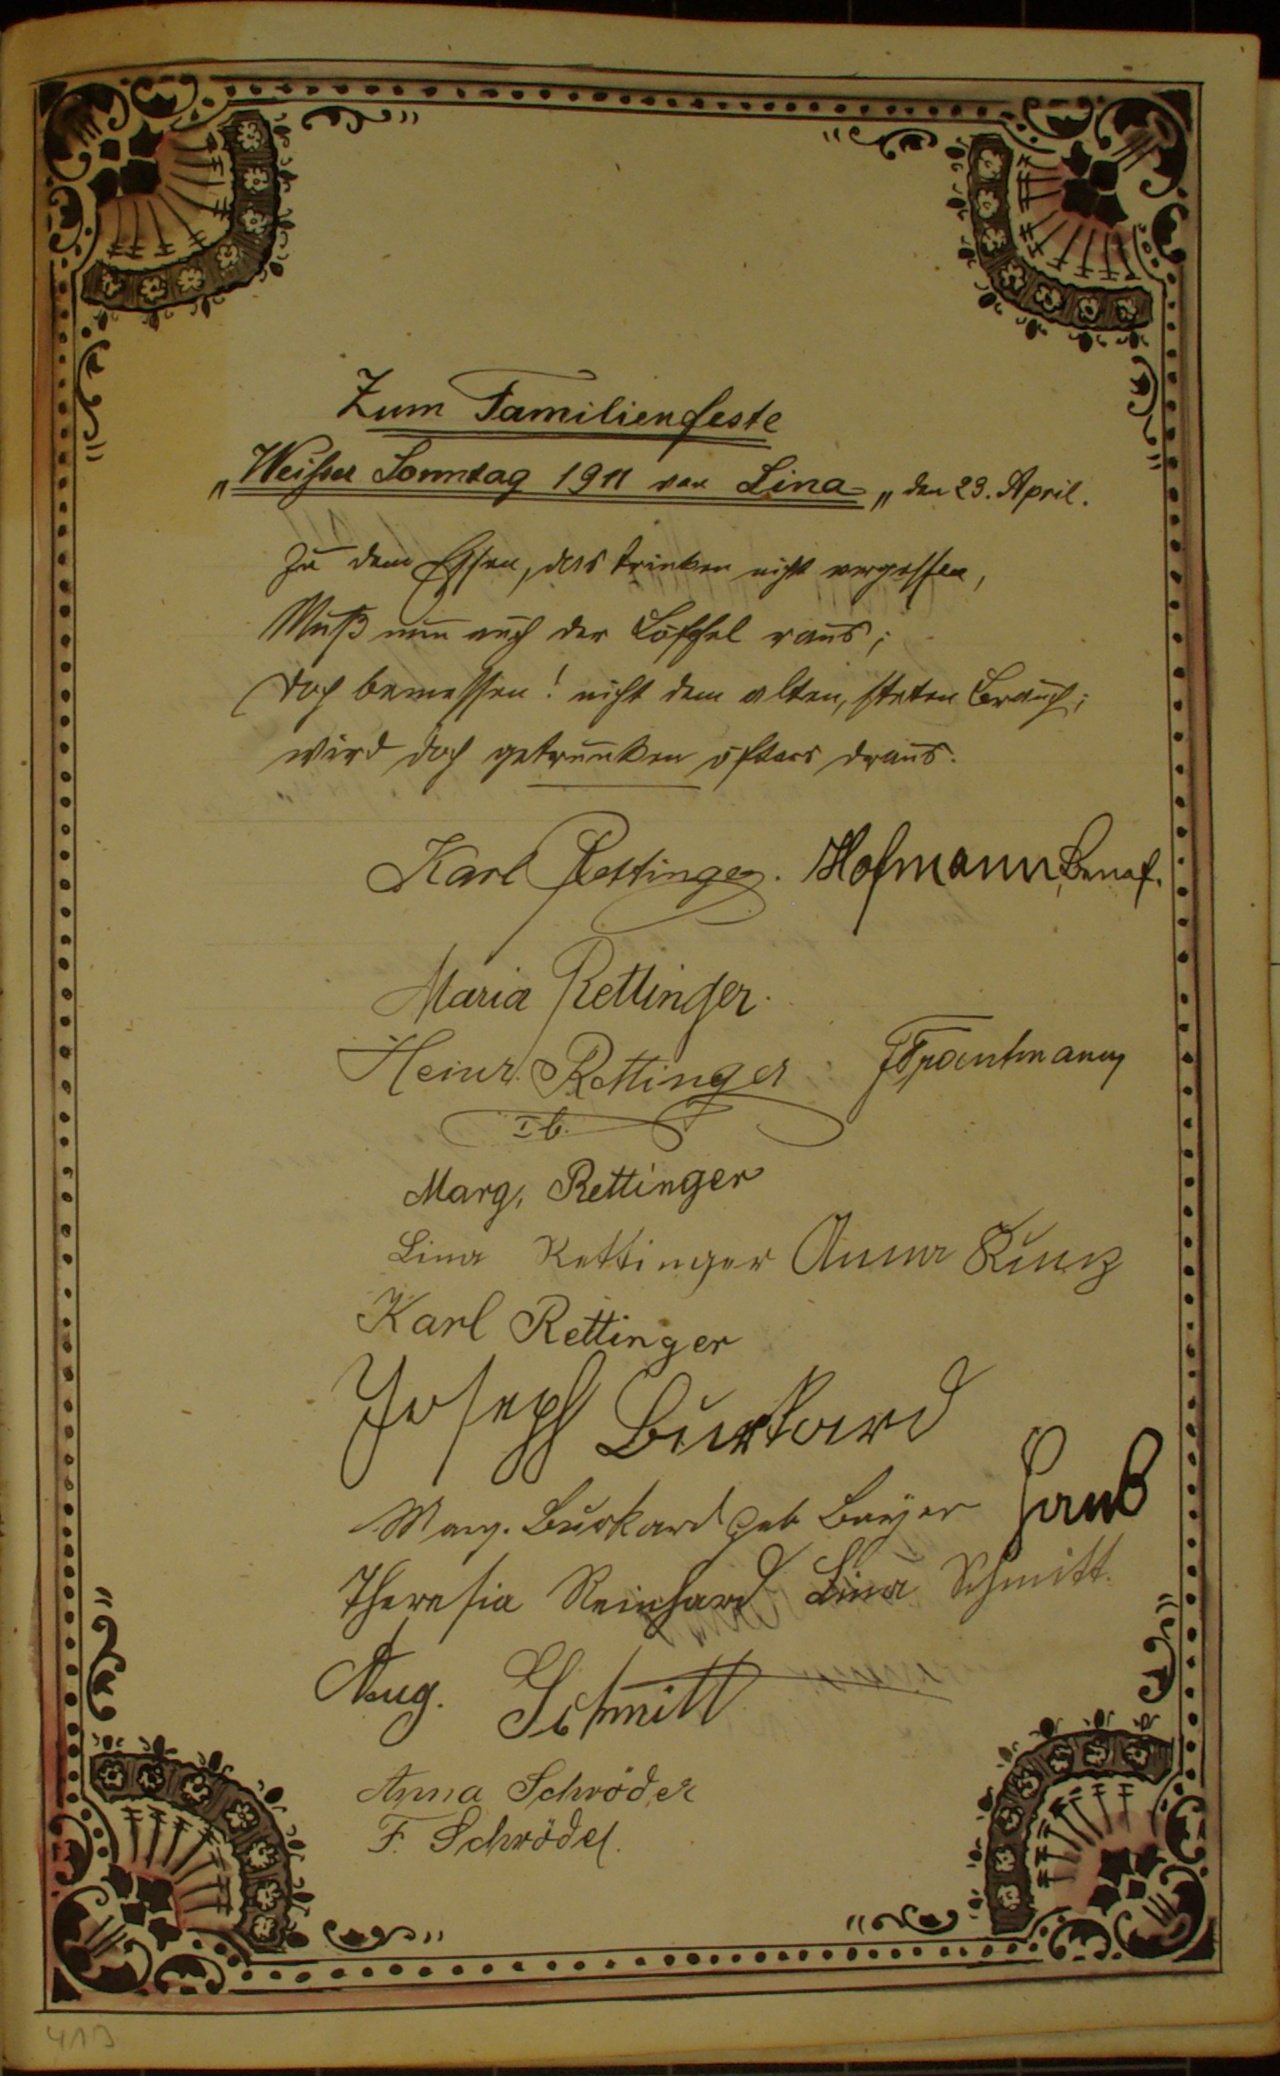 Zum Familienfeste
„Weisser Sonntag 1911 von Lina„ den 23. April.
Zu dem Essen, das trinken nicht vergessen,
Muß nun auch der Löffel raus;
doch bemessen! nicht dem alten, steten Brauch;
wird doch getrunken öfters draus.
Karl Rettinger. Hofmann,
Maria Rettinger.
Heinr. Rettinger
I b.
Marg. Rettinger
Lina Rettinger Anna Kunz
Karl Rettinger
Joseph Burkard
Marg. Burkard geb Beyer Haub
Theresia Reinhard Lina Schmitt.
Aug. Schmitt
Anna Schröder
F. Schröder.
413